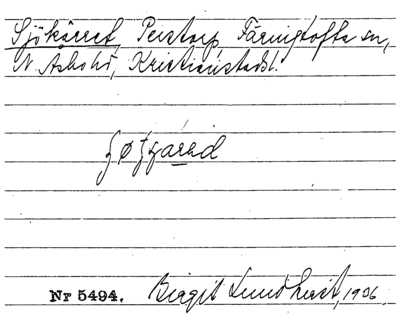 Sjökärret, Perstorp, Färingtofta sn,
N. Åsbohd, Kristianstads l.
Nr 5494. Birgit Lundkvist, 1936.